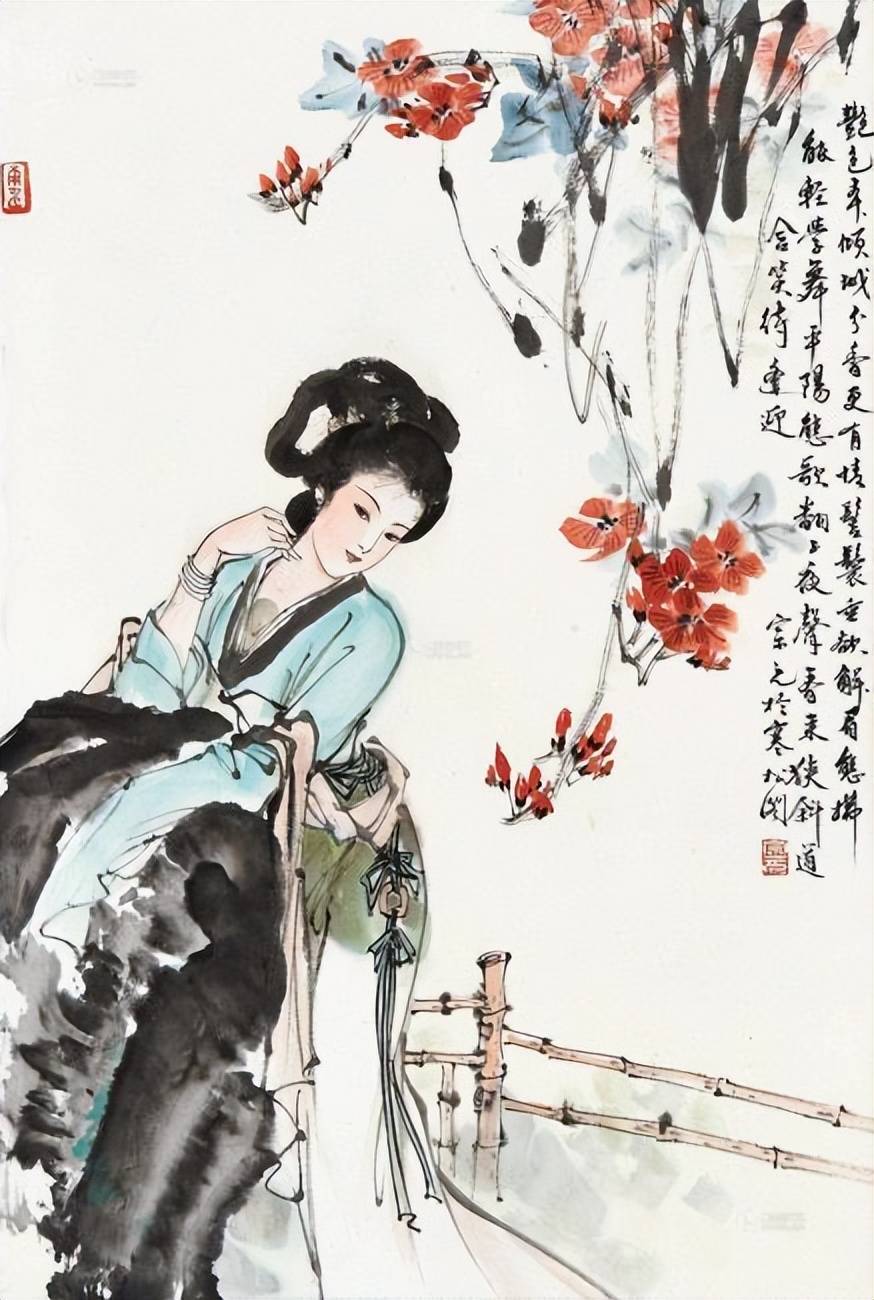 艷色本傾城分香更有情髻鬟垂欲解眉態拂
能輕學舞平陽態歌翻子夜聲春来狹斜道
含笑待逢迎
宗元於寒松閣